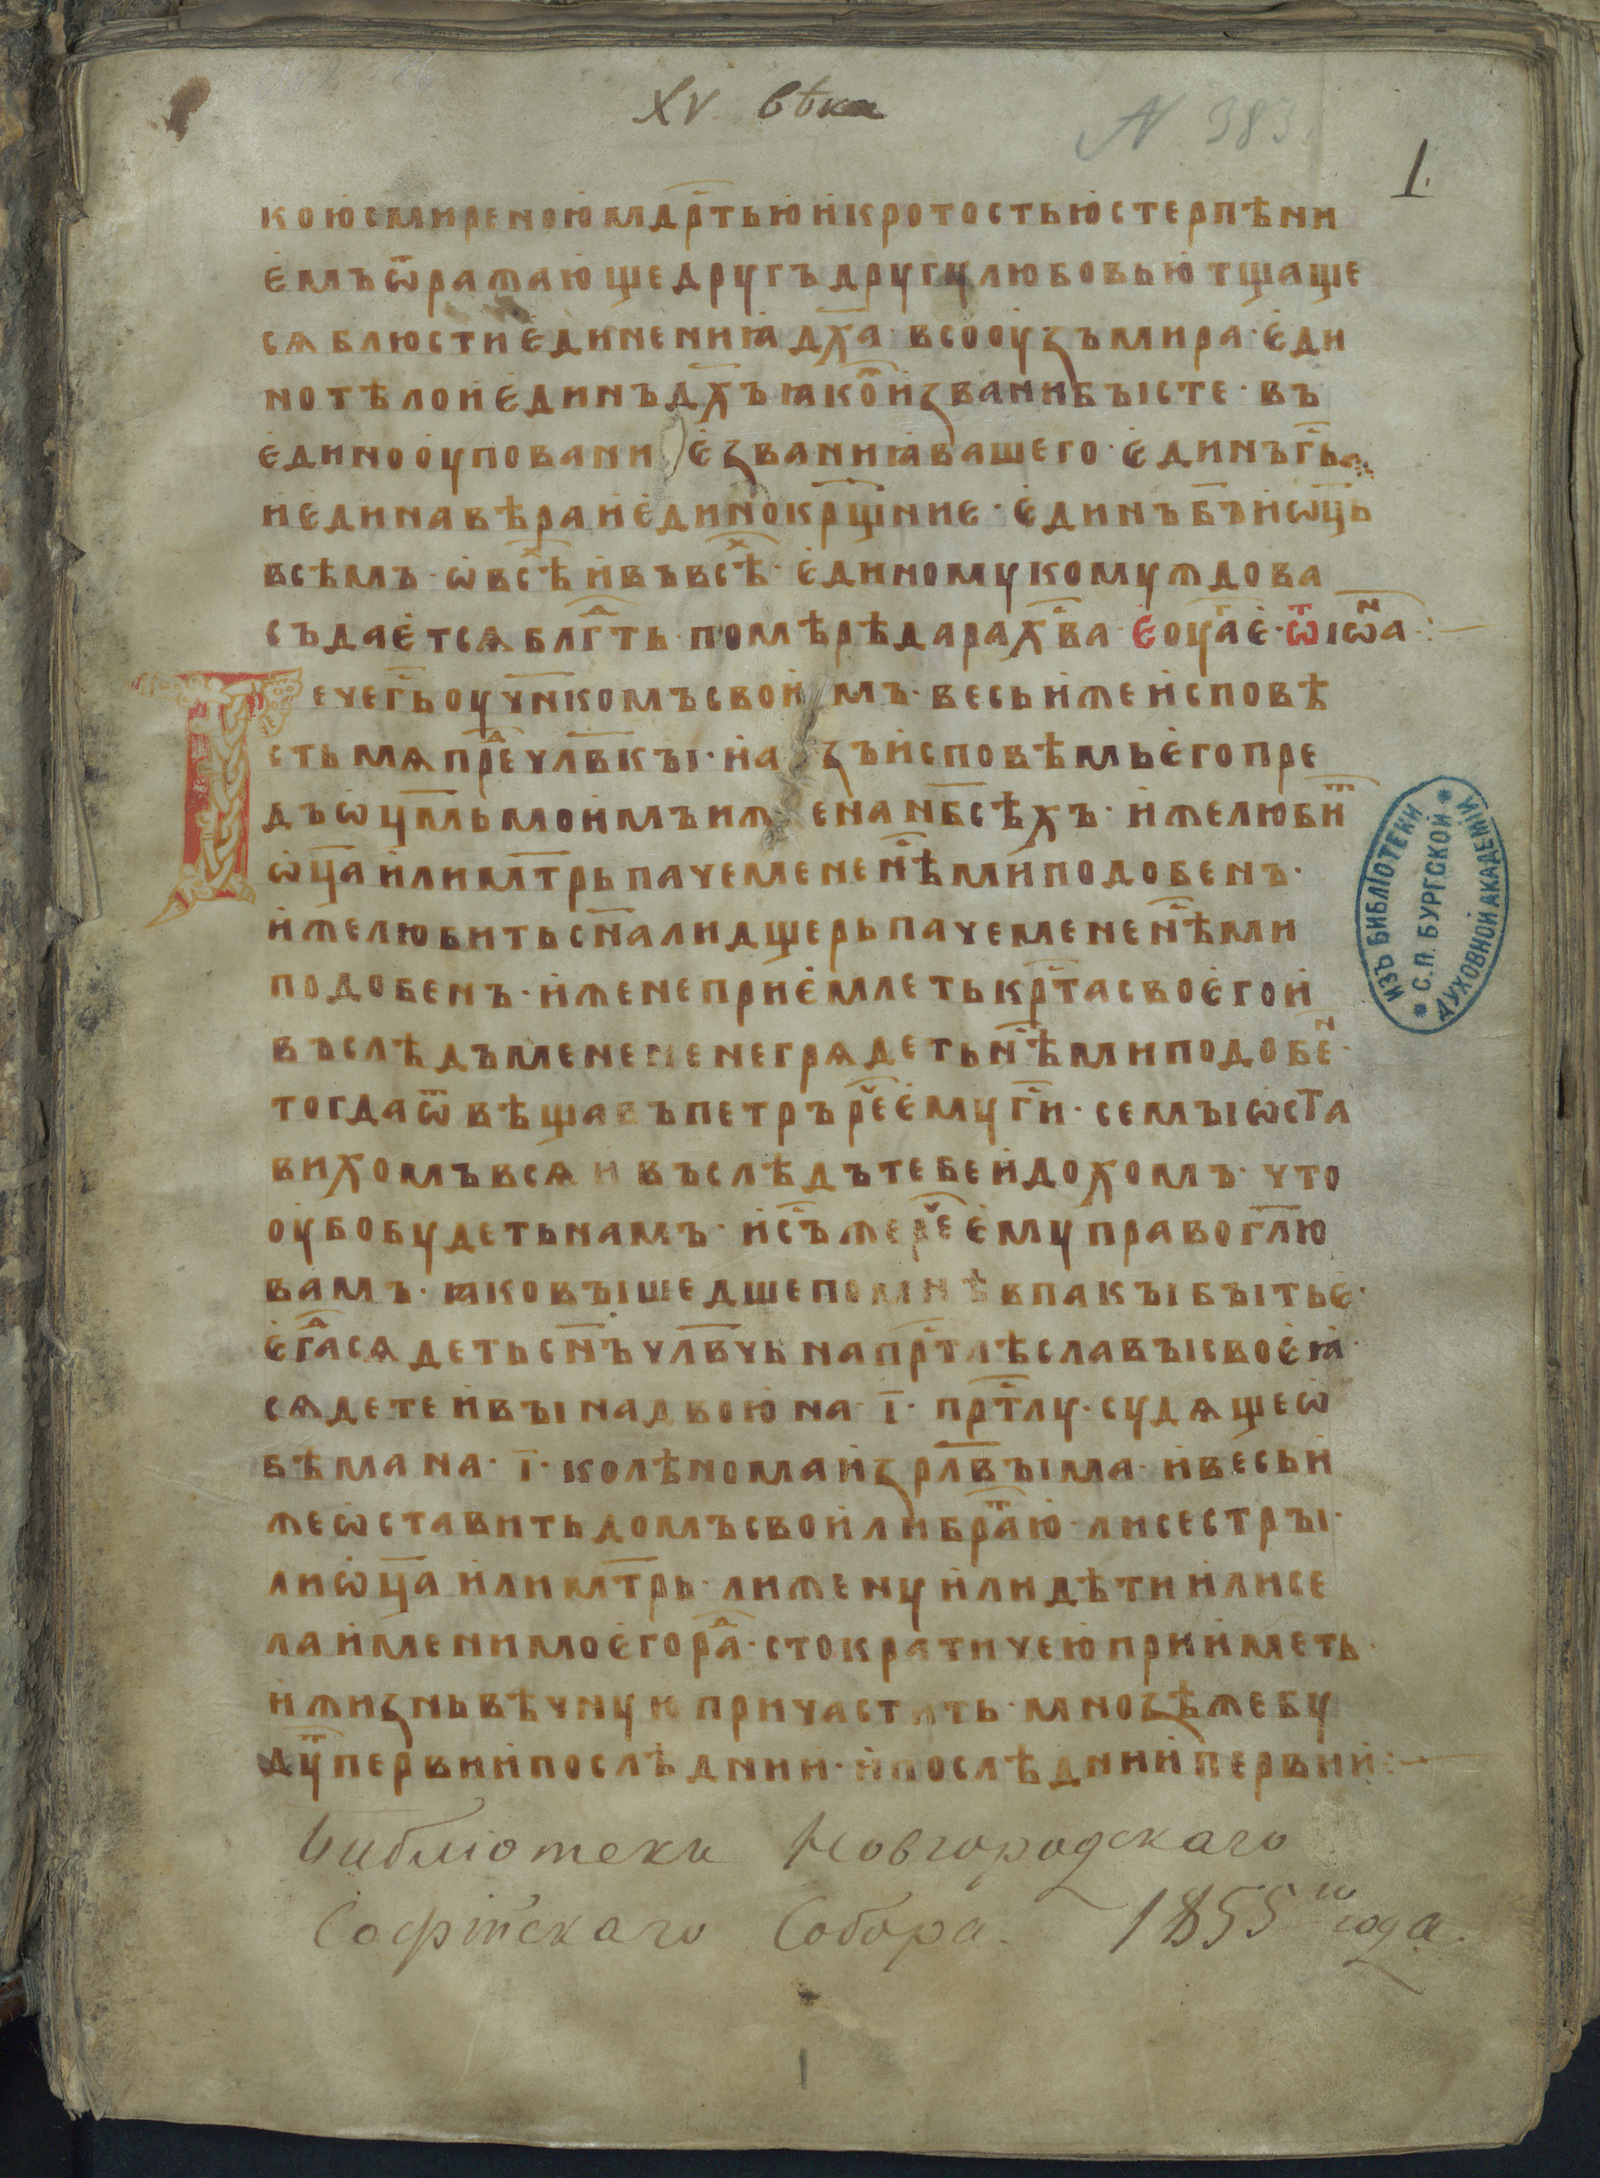 XV. вѣка
N 383.
1.
коюсмиреноюмдрⷭ҇тьюикротостьюстерпѣни
ємъѿражающедругъдругулюбовьютщаще
сѧблюстиєдинениꙗдх҃а·всооуꙁъмира·єди
нотѣлоиєдинъдх҃ъꙗкоⷤиꙁванибысте·въ
єдинооуповани єꙁваниꙗвашего·єдинъгь҃
иєдинавѣраиєдинокрщ҃ниє·єдинъбъ҃иѡц҃ь
всѣмъ·ѡвсѣⷯивъвсѣⷯ·єдиномукомуждова
съдаєтсѧблгⷣть·помѣрѣдарах҃ва·єоуⷢ҇аⷢ҇є·ѿіѡⷩа:
Речегь҃оучн҃комъсвои мъ·весьижеисповѣ
стьмѧпреⷣчлв҃кы·иа ꙁъисповѣмьєгопре
дъѡц҃мьмоимъиж енанбс҃ѣхъ·ижелюбиⷮ
ѡц҃аилимт҃рьпачемененⷭ҇ѣмиподобенъ·
ижелюбитьсн҃алидщерьпачемененⷭ҇ѣми
подобенъ·иженеприємлетькрⷭ҇тасвоєгои
въслѣдъмененегрѧдетьнⷭ҇ѣмиподобеⷩ·
тогдаѿвѣщавъпетръреⷱ҇ємуги҃·семыѡста
вихомъвсѧивъслѣдътебеидохомъ·что
оубобудетьнамъ·ис҃ъжереⷱ҇ємуправогл҃ю
вамъ·ꙗковышедшепомнѣвпакыбытьє·
єгⷣасѧдетьсн҃ъчлв҃чьнапрⷭ҇тлѣславысвоєꙗ·
сѧдетеивынадвоюна·і҃·прⷭ҇тлу·судѧщеѡ
бѣмана·і҃·колѣномаиꙁрл҃выма·ивесьи
жеѡставитьдомъсвоилибраⷮю·лисестры·
лиѡц҃аилимт҃рь·лиженуилидѣтиилисе
лаименимоєгораⷣ·стократичеюприиметь·
ижиꙁньвѣчнуюпричаститьмноꙁѣжебу
дуⷮпервиипослѣднии·ипослѣдниипервии:
Библіотеки Новгородскаго
Софійскаго Собора. 1855го года.
ИЗЪ БИБЛІОТЕКИ
* С.П.БУРГСКОЙ *
ДУХОВНОЙ АКАДЕМІИ
1